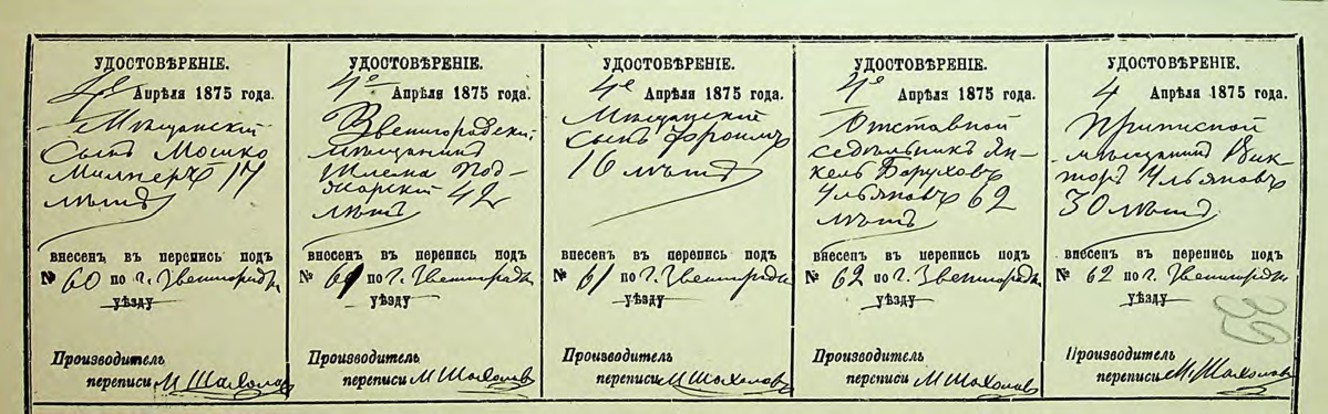 УДОСТОВѢРЕНІЕ.
4го Апрѣля 1875 года.
Мѣщанскій
сынъ Мошко
Милнеръ 17
лѣтъ
внесенъ въ перепись подъ
№ 60 по г. Звенигородкѣ
уѣзду
Производитель
переписи М Шахолов
УДОСТОВѢРЕНІЕ.
4го Апрѣля 1875 года.
Звенигородскій
мѣщанинъ
Шлема Под-
42
лѣтъ
внесенъ въ перепись подъ
№ 61 по г. Звенигородкѣ
уѣзду
Производитель
переписи М Шахолов
УДОСТОВѢРЕНІЕ.
4го Апрѣля 1875 года.
Мѣщанскій
сынъ Фроимъ
16 лѣтъ
внесенъ въ перепись подъ
№ 61 по г. Звенигородкѣ
уѣзду
Производитель
переписи М Шахолов
УДОСТОВѢРЕНІЕ.
4го Апрѣля 1875 года.
Отставной
седѣльникъ Ян-
кель Баруховъ
Ульяновъ 62
лѣтъ
внесенъ въ перепись подъ
№ 62 по г. Звенигородкѣ
уѣзду
Производитель
переписи М Шахолов
УДОСТОВѢРЕНІЕ.
4 Апрѣля 1875 года.
Приписной
мѣщанинъ Вик-
торъ Ульяновъ
30 лѣтъ
внесенъ въ перепись подъ
№ 62 по г. Звенигородкѣ
уѣзду
Производитель
переписи М. Шахолов